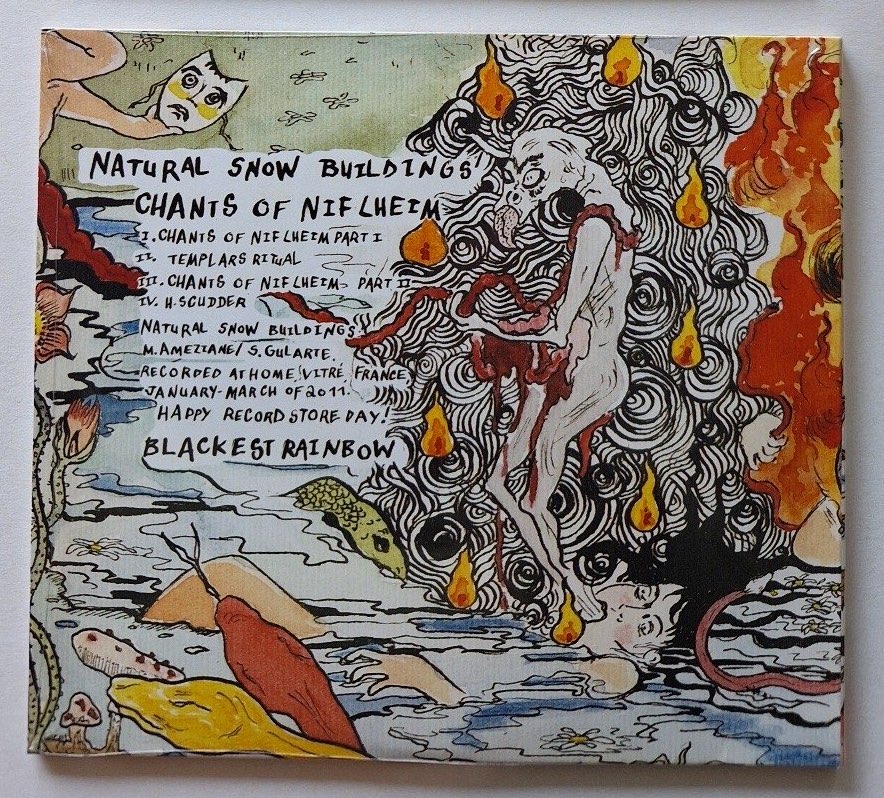 NATURAL SNOW BUILDINGS'
CHANTS OF NIFLHEIM
I. CHANTS OF NIFLHEIM PART I
II. TEMPLARS RITUAL
III. CHANTS OF NIFLHEIM - PART II
IV. H. SCUDDER
NATURAL SNOW BUILDINGS:
M. AMEZIANE / S. GULARTE.
RECORDED AT HOME, VITRÉ, FRANCE,
JANUARY-MARCH OF 2011.
HAPPY RECORD STORE DAY!
BLACKEST RAINBOW